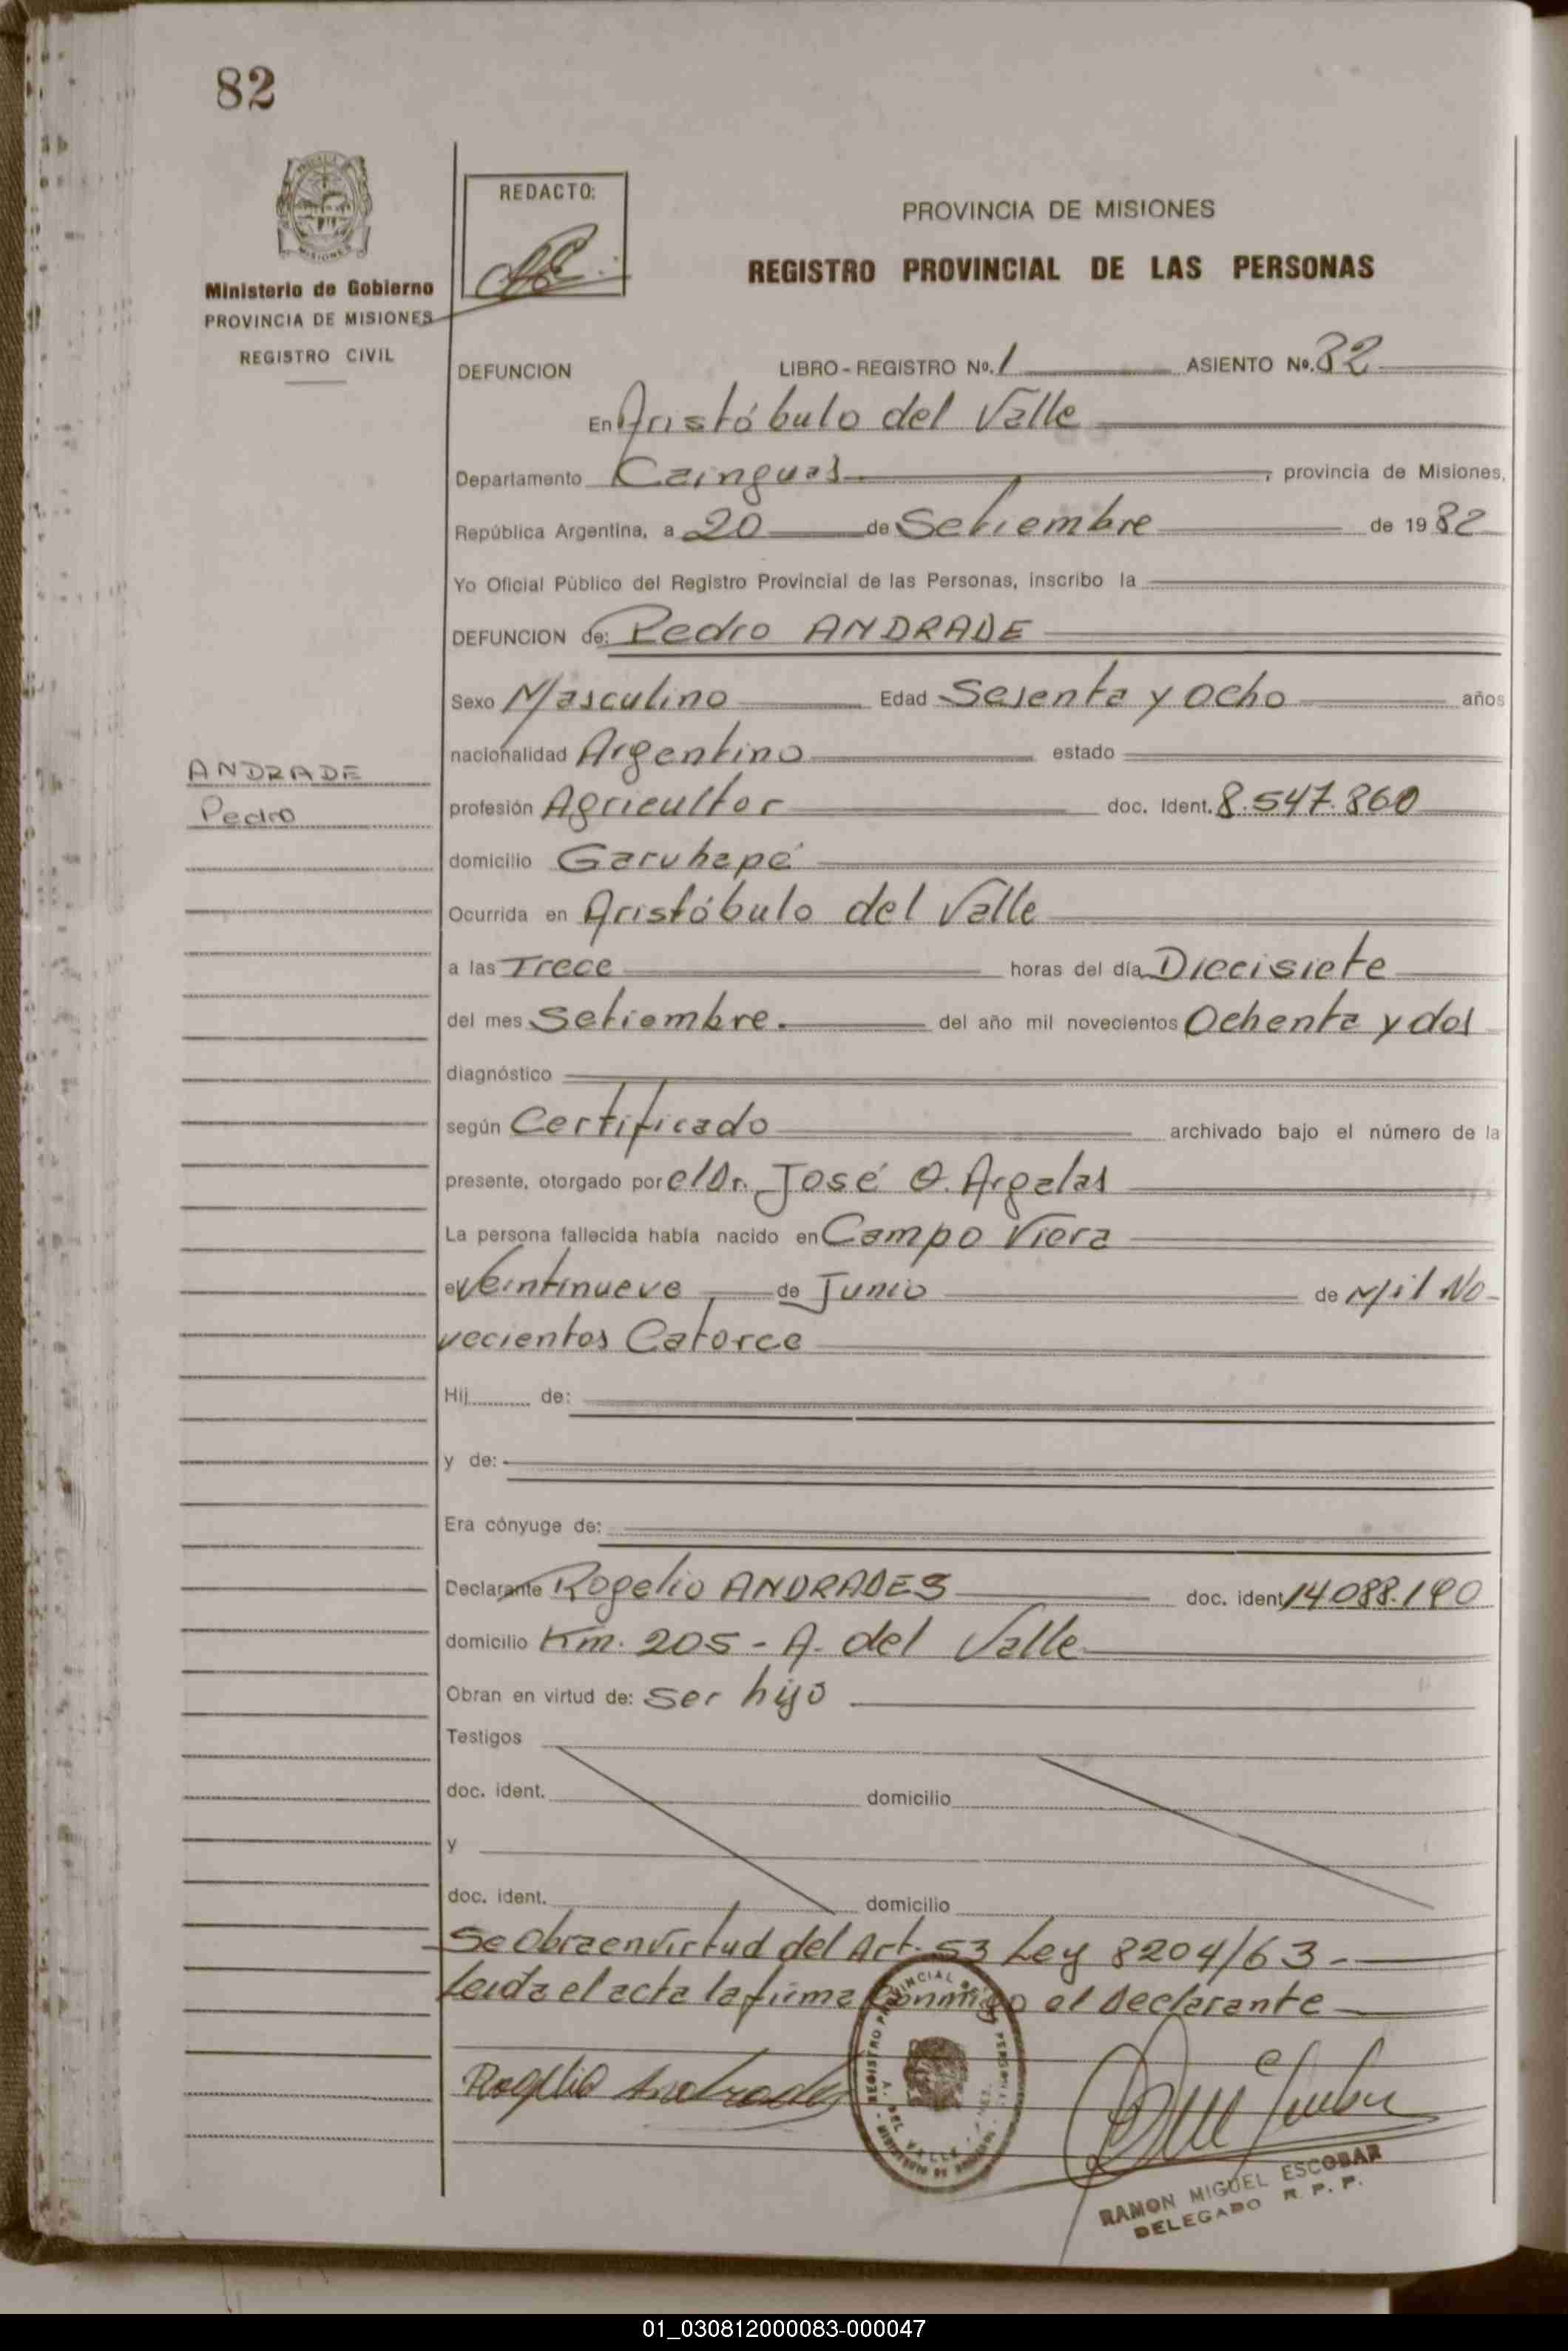 82
MISIONES
Ministerio de Gobierno
PROVINCIA DE MISIONES
REGISTRO CIVIL
REDACTO:
PROVINCIA DE MISIONES
REGISTRO PROVINCIAL DE LAS PERSONAS
DEFUNCION LIBRO-REGISTRO No. 1 ASIENTO No. 82
En Aristóbulo del Valle
Departamento Cainguas, provincia de Misiones,
República Argentina, a 20 de Setiembre de 1982
Yo Oficial Público del Registro Provincial de las Personas, inscribo la
DEFUNCION de: Pedro ANDRADE
Sexo Masculino Edad Sesenta y Ocho años
nacionalidad Argentino estado
ANDRADE
Pedro
profesión Agricultor doc. Ident. 8.547.860
domicilio Garuhapé
Ocurrida en Aristóbulo del Valle
a las Trece horas del día Diecisiete
del mes Setiembre. del año mil novecientos Ochenta y dos
diagnóstico
según Certificado archivado bajo el número de la
presente, otorgado por el Dr. José O. Argalas
La persona fallecida había nacido en Campo Viera
el Veintinueve de Junio de Mil No-
vecientos Catorce
Hij de:
y de:
Era cónyuge de:
Declarante Rogelio ANDRADES doc. ident 14.088.190
domicilio Km. 205 - A. del Valle
Obran en virtud de: ser hijo
Testigos
doc. ident. domicilio
y
doc. ident. domicilio
Se Obra en virtud del Art. 53 Ley 8204/63 -
Leida el acta la firma Conmigo el Declarante
Rogelio Andrades
RAMON MIGUEL ESCOBAR
DELEGADO R. P. P.
01_030812000083-000047